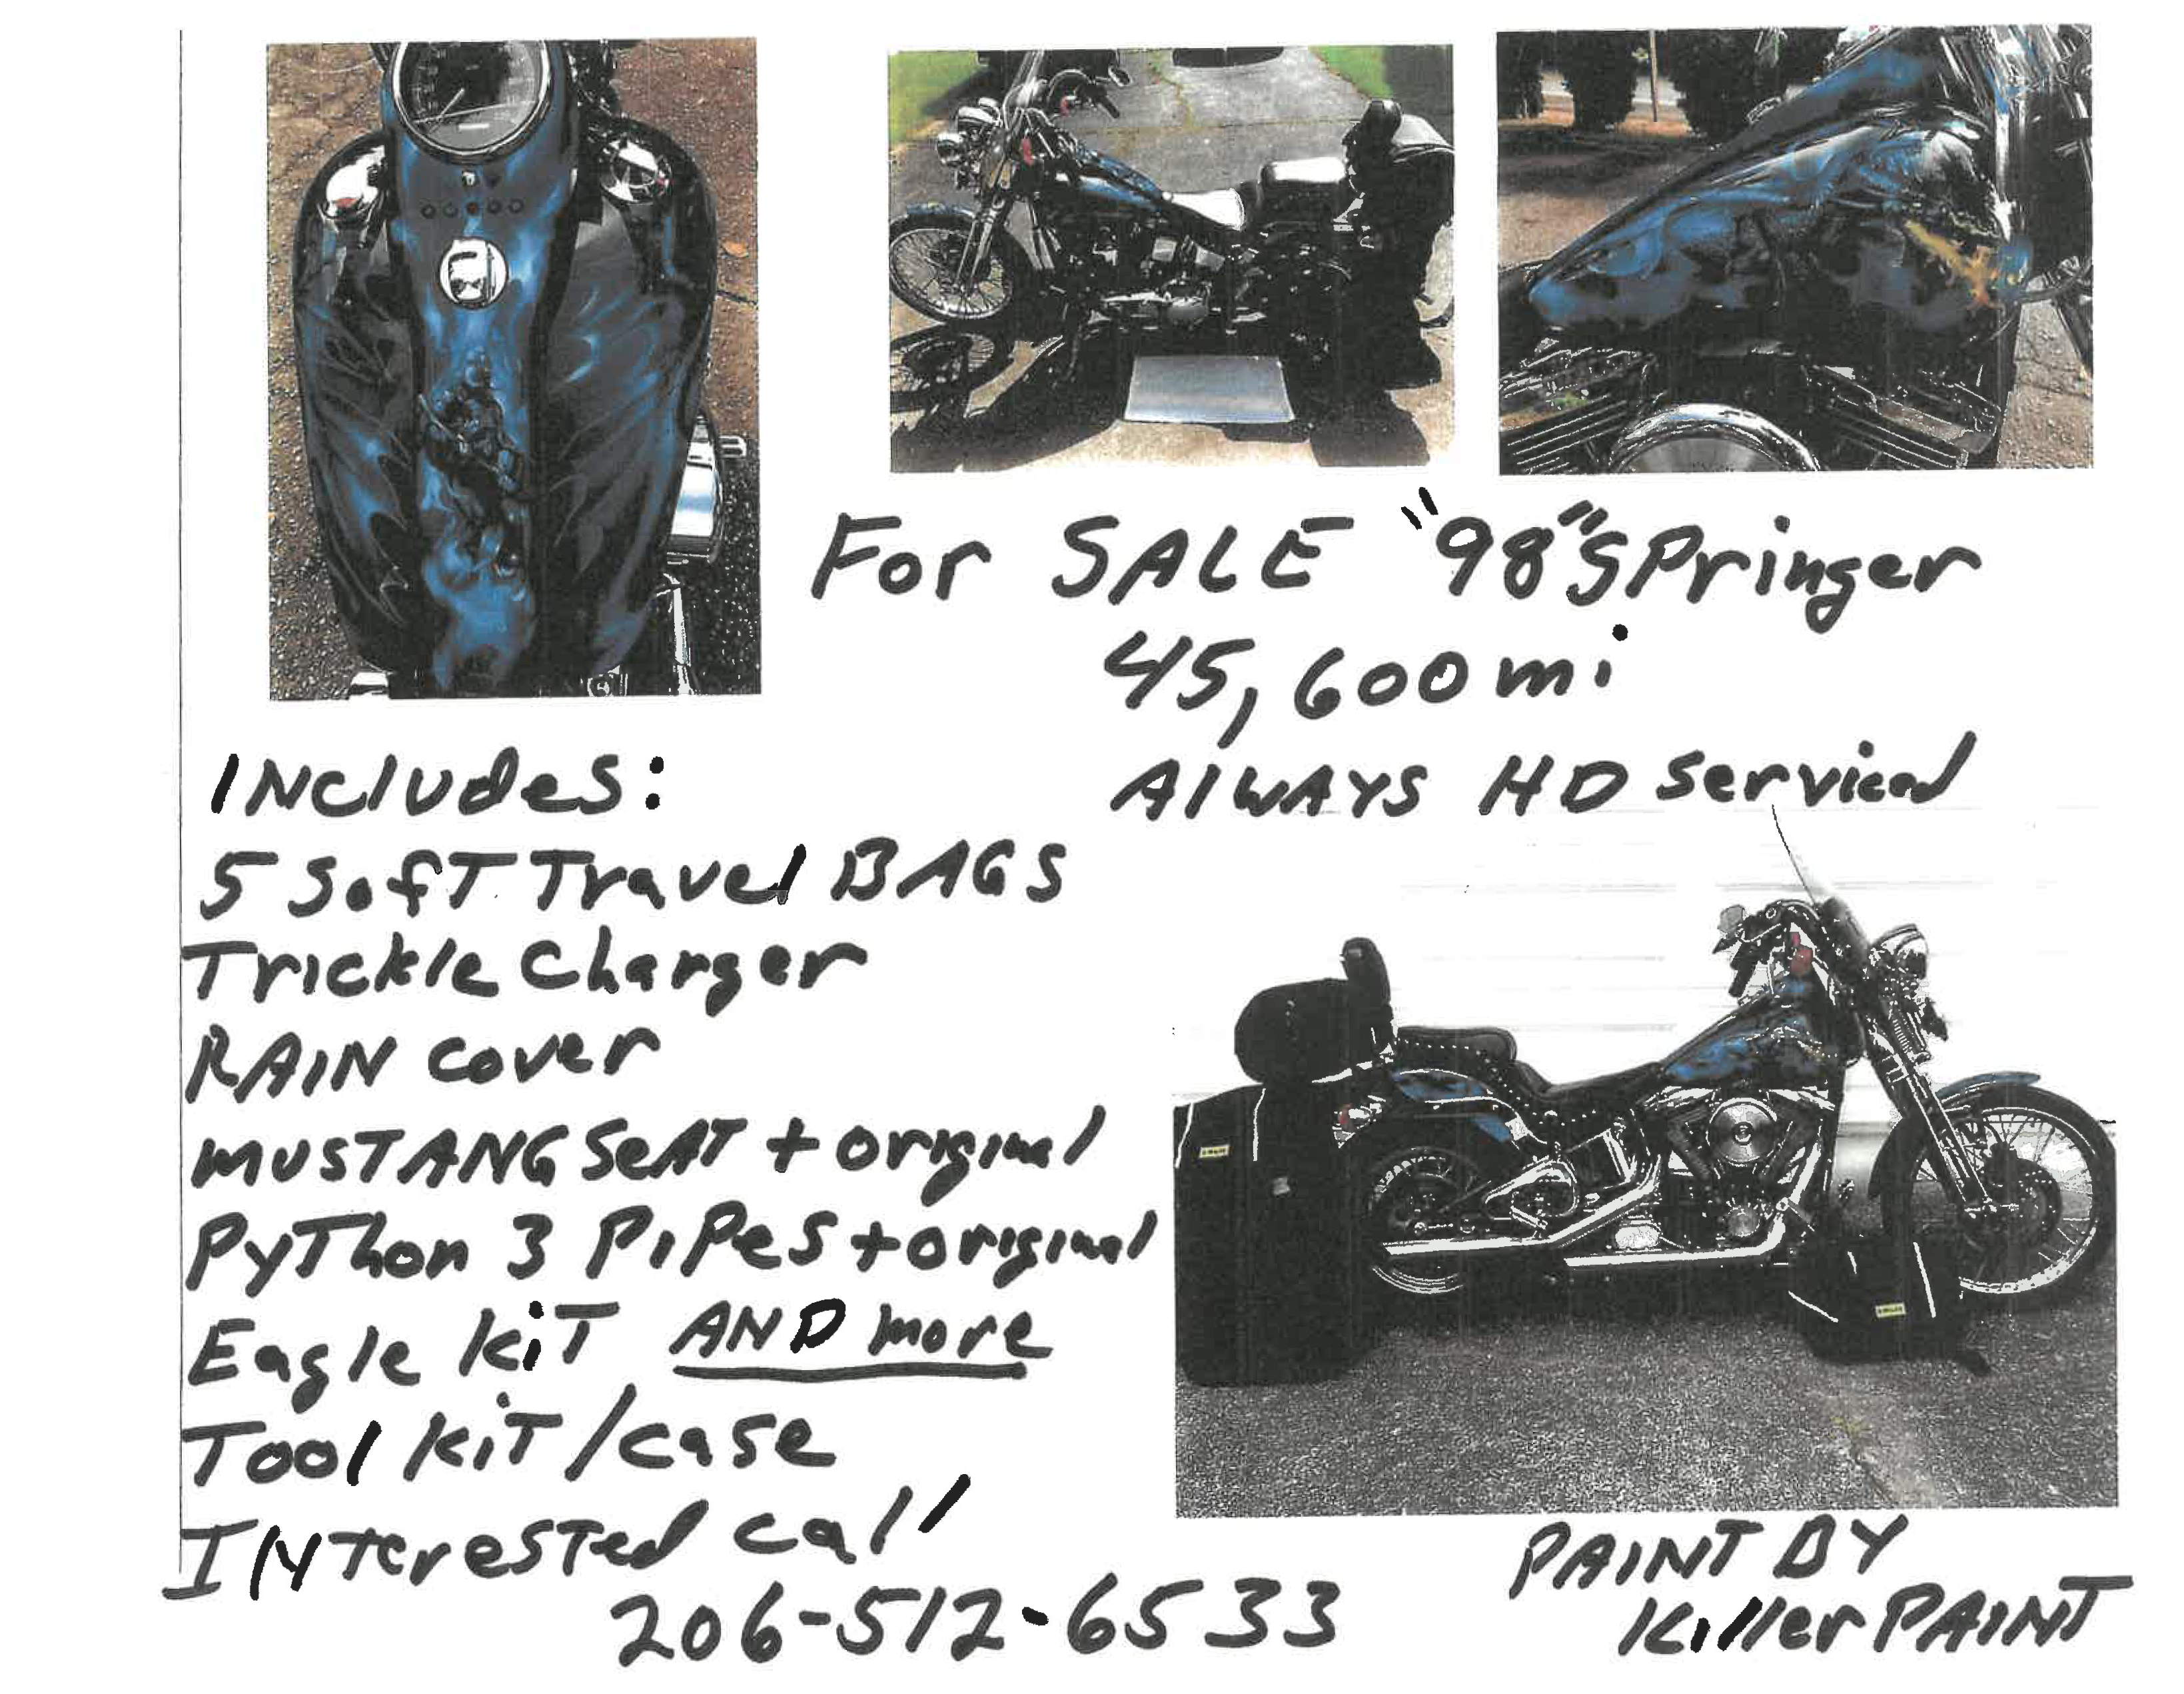 For SALE "98" SPringer
45,600 mi
AlWAYS HD serviced
INcludes:
5 SofT Travel BAGS
Trickle Charger
RAIN cover
MUSTANG SeAT + original
PyThon 3 PiPes + original
Eagle KiT AND more
Tool KiT/case
INTeresTed call
206-512-6533
PAINT BY
Killer PAINT